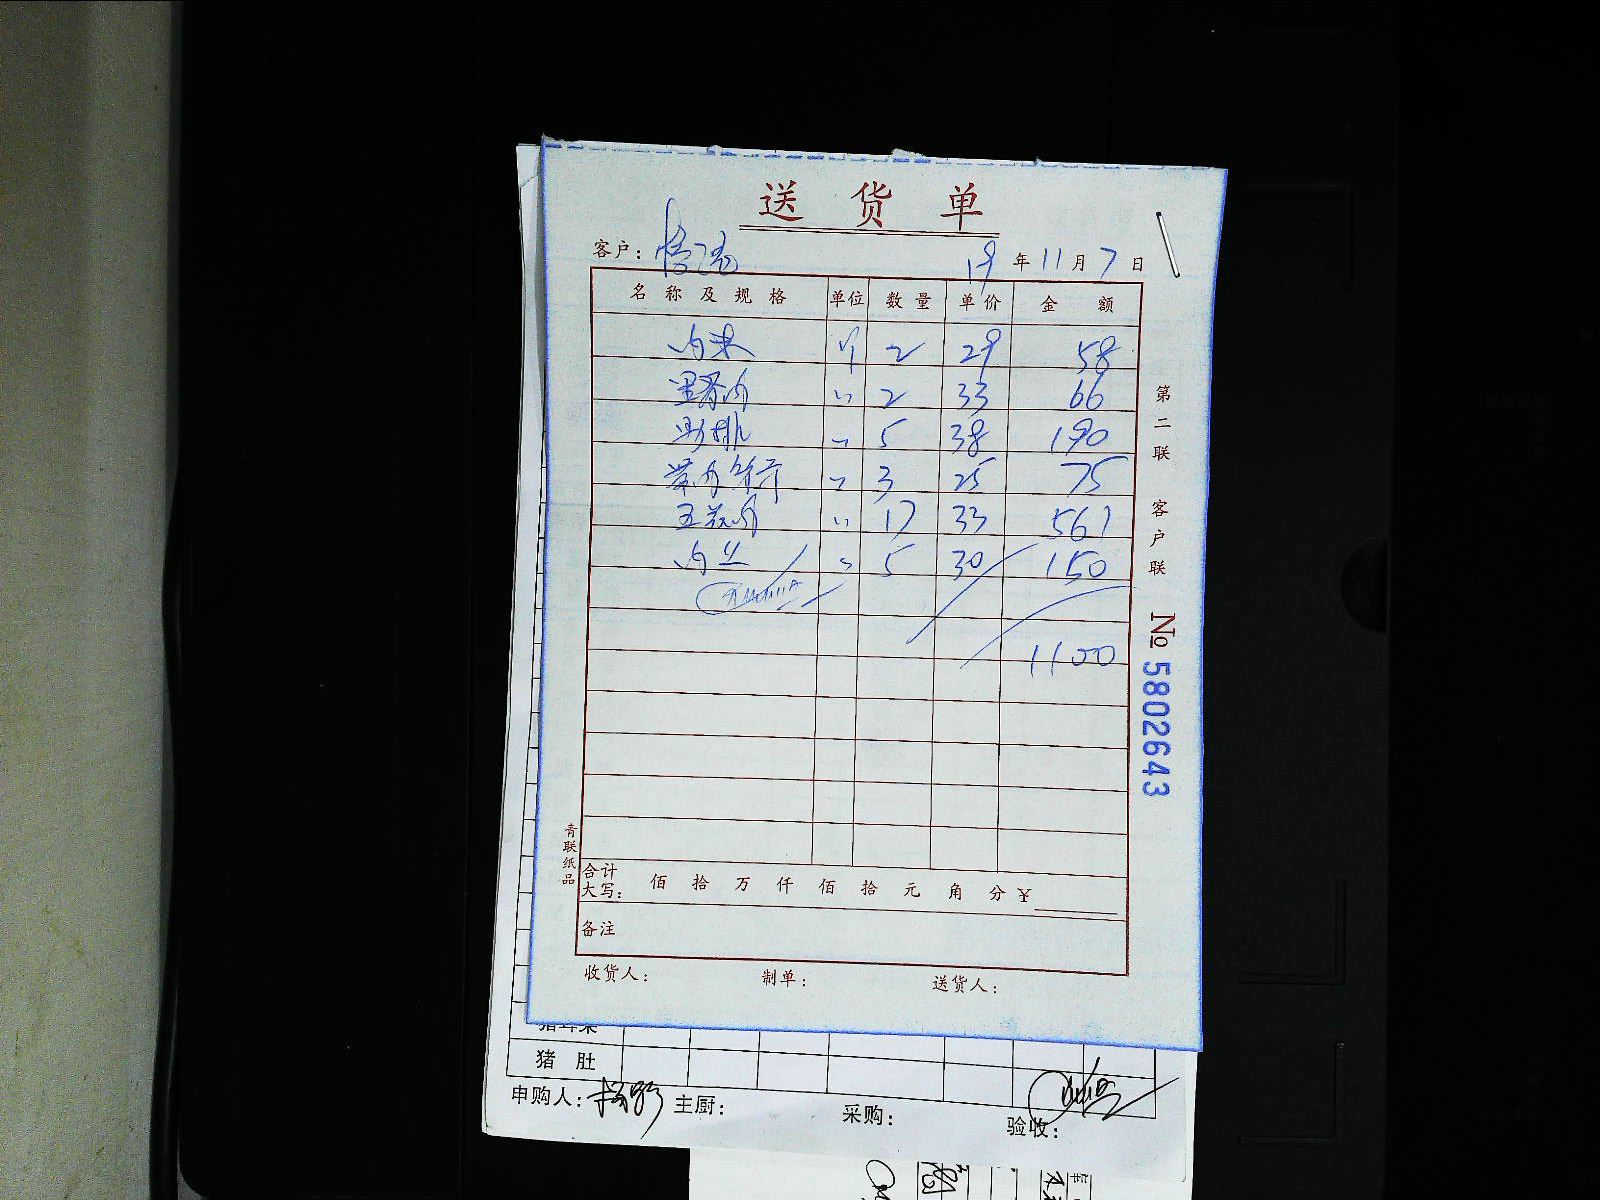 送货单
客户: 19年11月7日
名称及规格 单位 数量 单价 金额
肉末 个 2 29 58
里脊肉 〃 2 33 66
肋排 〃 5 38 190
带肉 〃 3 25 75
五花肉 〃 17 33 561
肉丝 〃 5 30 150
1100
第二联 客户联
№ 5802643
青联纸品
合计大写: 佰 拾 万 仟 佰 拾 元 角 分 ¥
备注
收货人: 制单: 送货人:
猪耳朵
猪肚
申购人: 主厨: 采购: 验收: